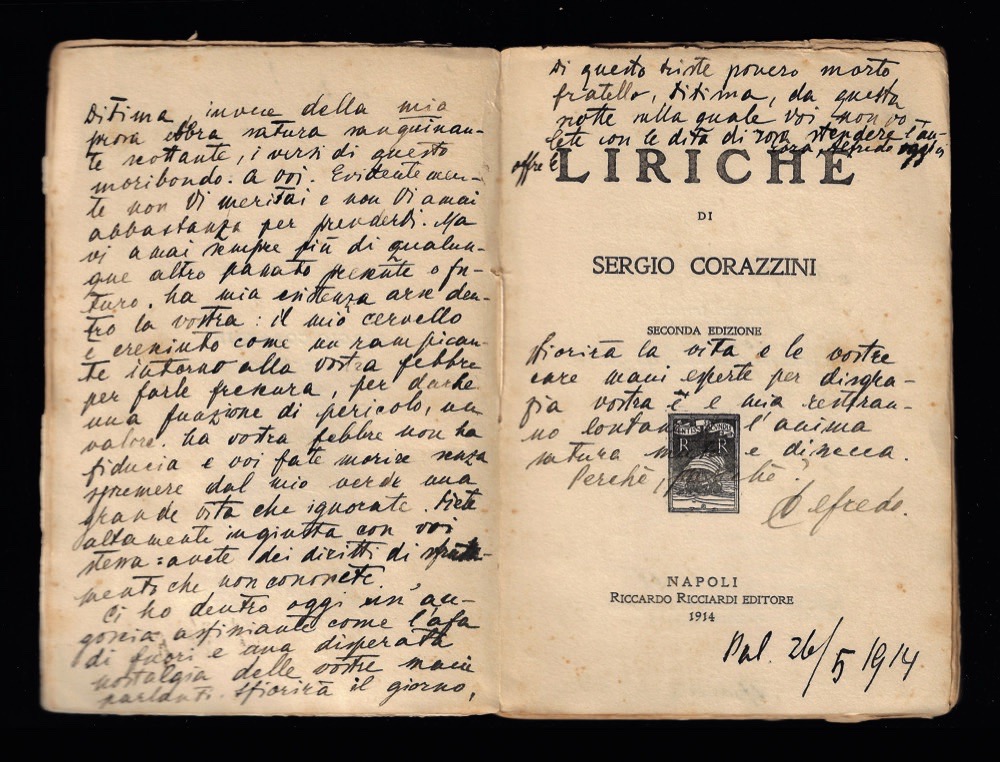 Ditima, invece della mia
prosa ebbra satura sanguinan-
te nottante, i versi di questo
moribondo. A voi. Evidentemen-
te non vi meritai e non vi amai
abbastanza per prendervi. Ma
vi amai sempre più di qualun-
que altro passato presente o fu-
turo. La mia esistenza arse den-
tro la vostra: il mio cervello
è cresciuto come un rampican-
te intorno alla vostra febbre
per farle frescura, per darle
una funzione di pericolo, un
valore. La vostra febbre non ha
fiducia e voi fate morire senza
spremere dal mio verde una
grande vita che ignorate. Siete
altamente ingiusta con voi
stessa: avete dei diritti di sfrutta-
mento che non conoscete.
Ci ho dentro oggi un'an-
goscia asfissiante come l'afa
di fuori e una disperata
nostalgia delle vostre mani
parlanti. Sfiorirà il giorno,
Di questo triste povero morto
fratello, Ditima, da questa
notte sulla quale voi non vo-
lete con le dita di rosa stendere l'au-
rora, Alfredo
offre
LIRICHE
DI
SERGIO CORAZZINI
SECONDA EDIZIONE
sfiorirà la vita e le vostre
care mani esperte per disgra-
zia vostra e mia restran-
no lontane l'anima
matura e dissecca.
Perchè, perchè?
Alfredo.
R R
NAPOLI
RICCARDO RICCIARDI EDITORE
1914
Pal. 26/5 1914